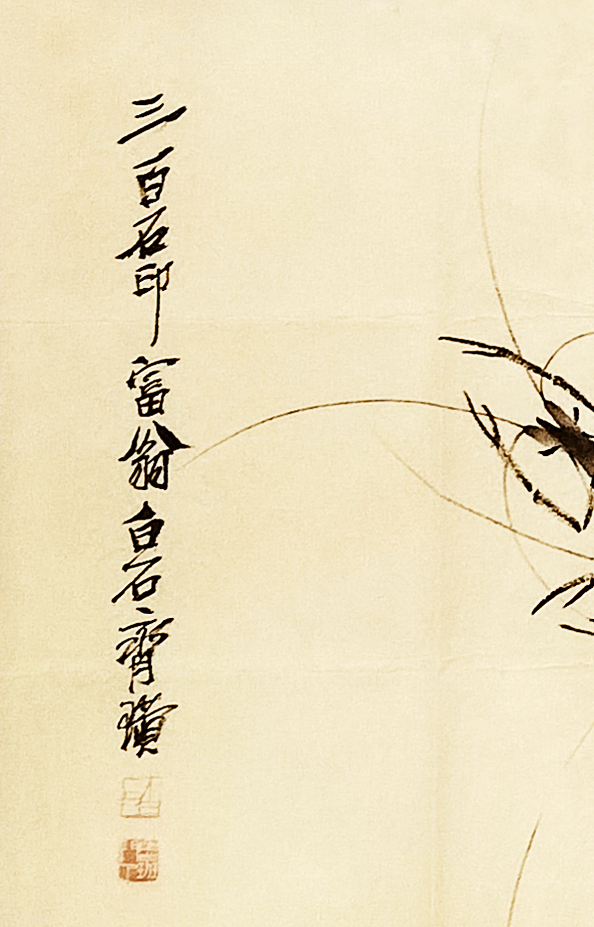 三百石印富翁白石齊璜